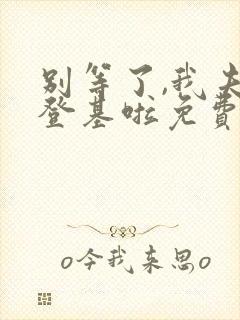 别等了,我夫
登基啦免費
o今我来思o